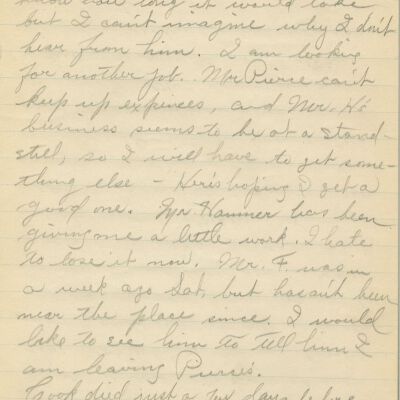 know how long it would take
but I can't imagine why I don't
hear from him. I am looking
for another job. Mr Pierce can't
keep up expinces, and Mr. H's
business seems to be at a stand-
still, so I will have to get some-
thing else - Here's hoping I get a
good one. Mr Hammer has been
giving me a little work. I hate
to lose it now. Mr. F. was in
a week ago Sat, but hasn't been
near the place since. I would
like to see him to tell him I
am leaving Pierce's.
Cook died just a few days before